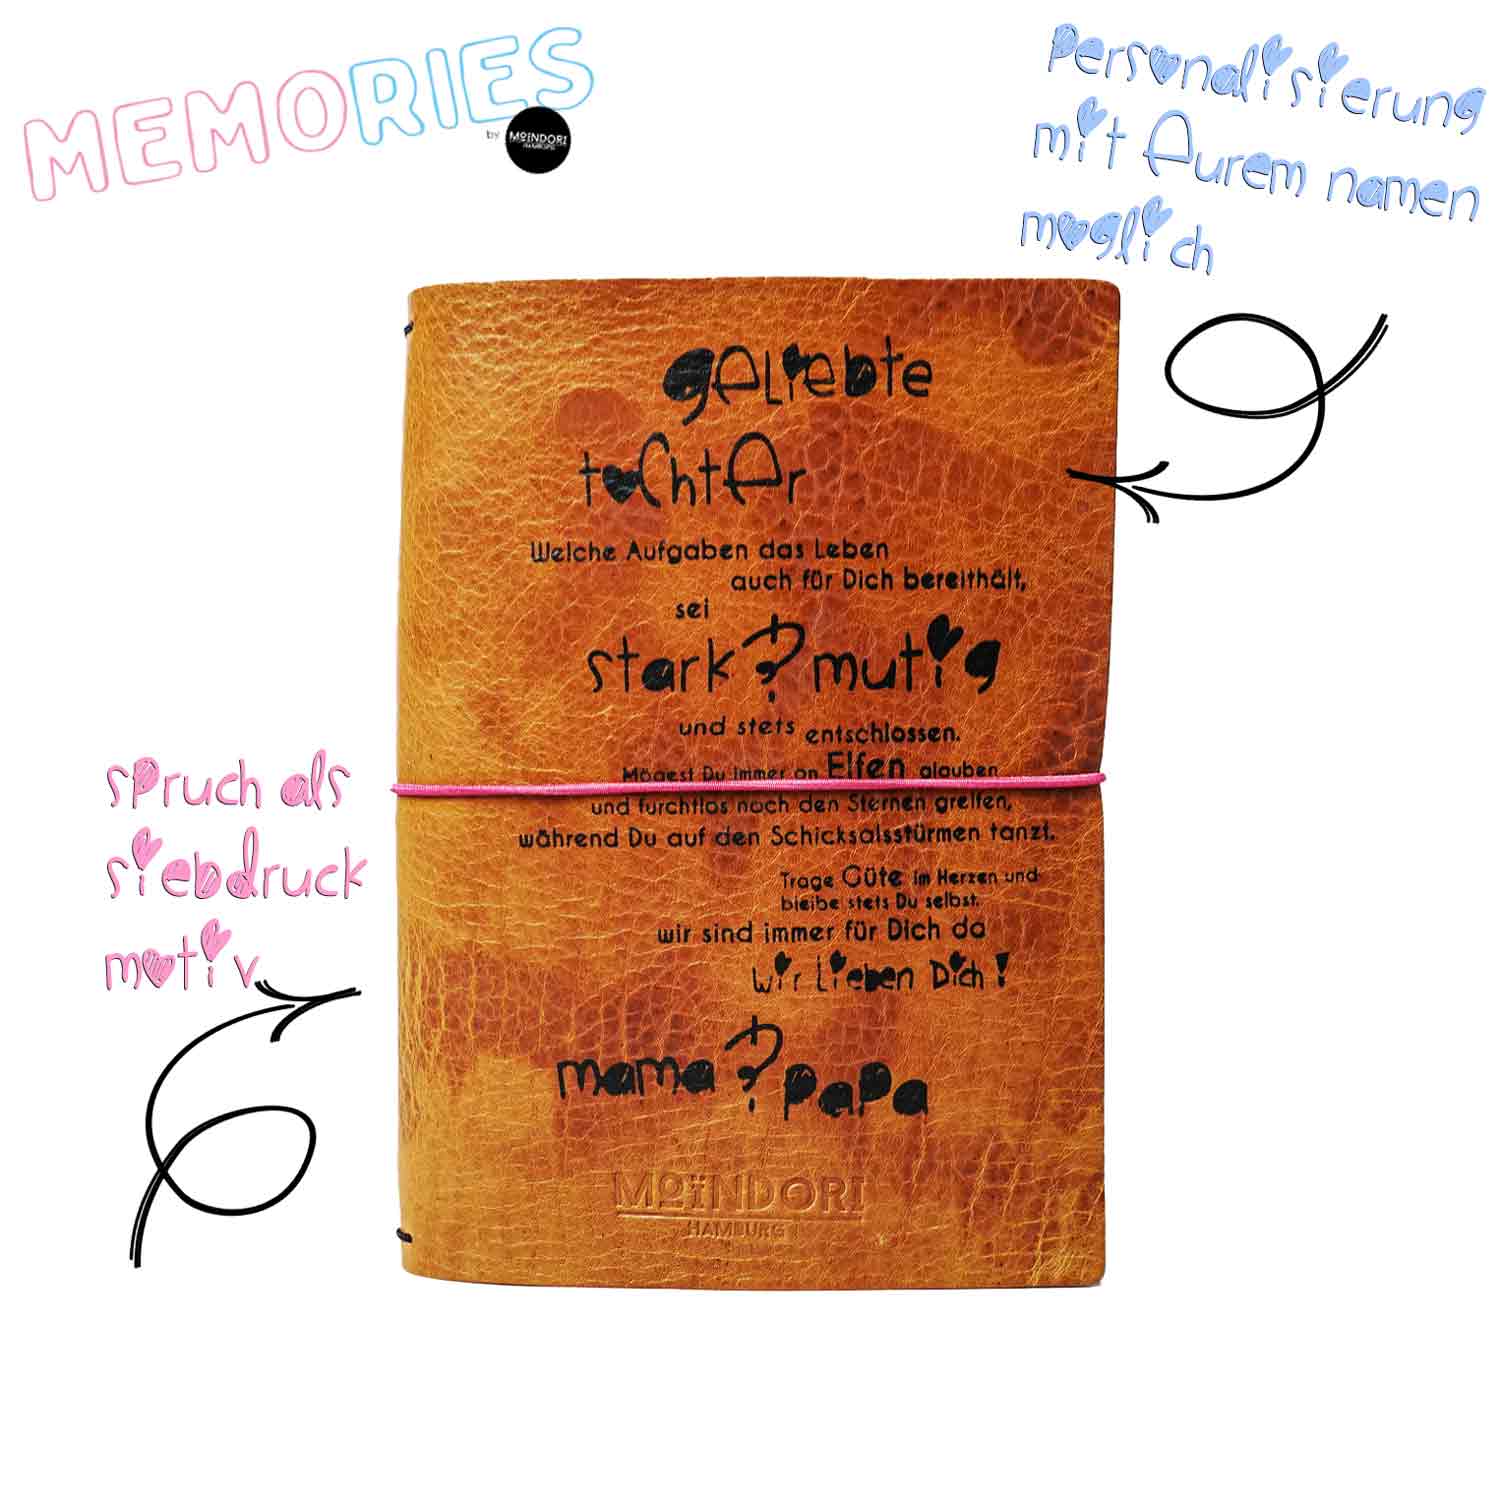 MEMORIES
by MOINDORI
HAMBURG
personalisierung
mit Eurem namen
moglich
geliebte
tochter
Welche Aufgaben das Leben
auch für Dich bereithält,
sei
stark & mutig
und stets entschlossen.
Mögest Du immer an Elfen glauben
und furchtlos nach den Sternen greifen,
während Du auf den Schicksalsstürmen tanzt.
Trage Güte im Herzen und
bleibe stets Du selbst.
wir sind immer für Dich da
wir lieben Dich !
mama & papa
MOÏNDORI
HAMBURG
spruch als
siebdruck
motiv